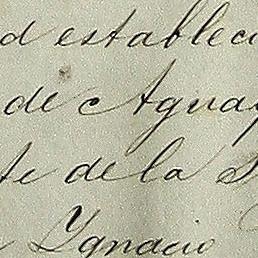 d establec
de Aguay
te de la S
Ygnacio